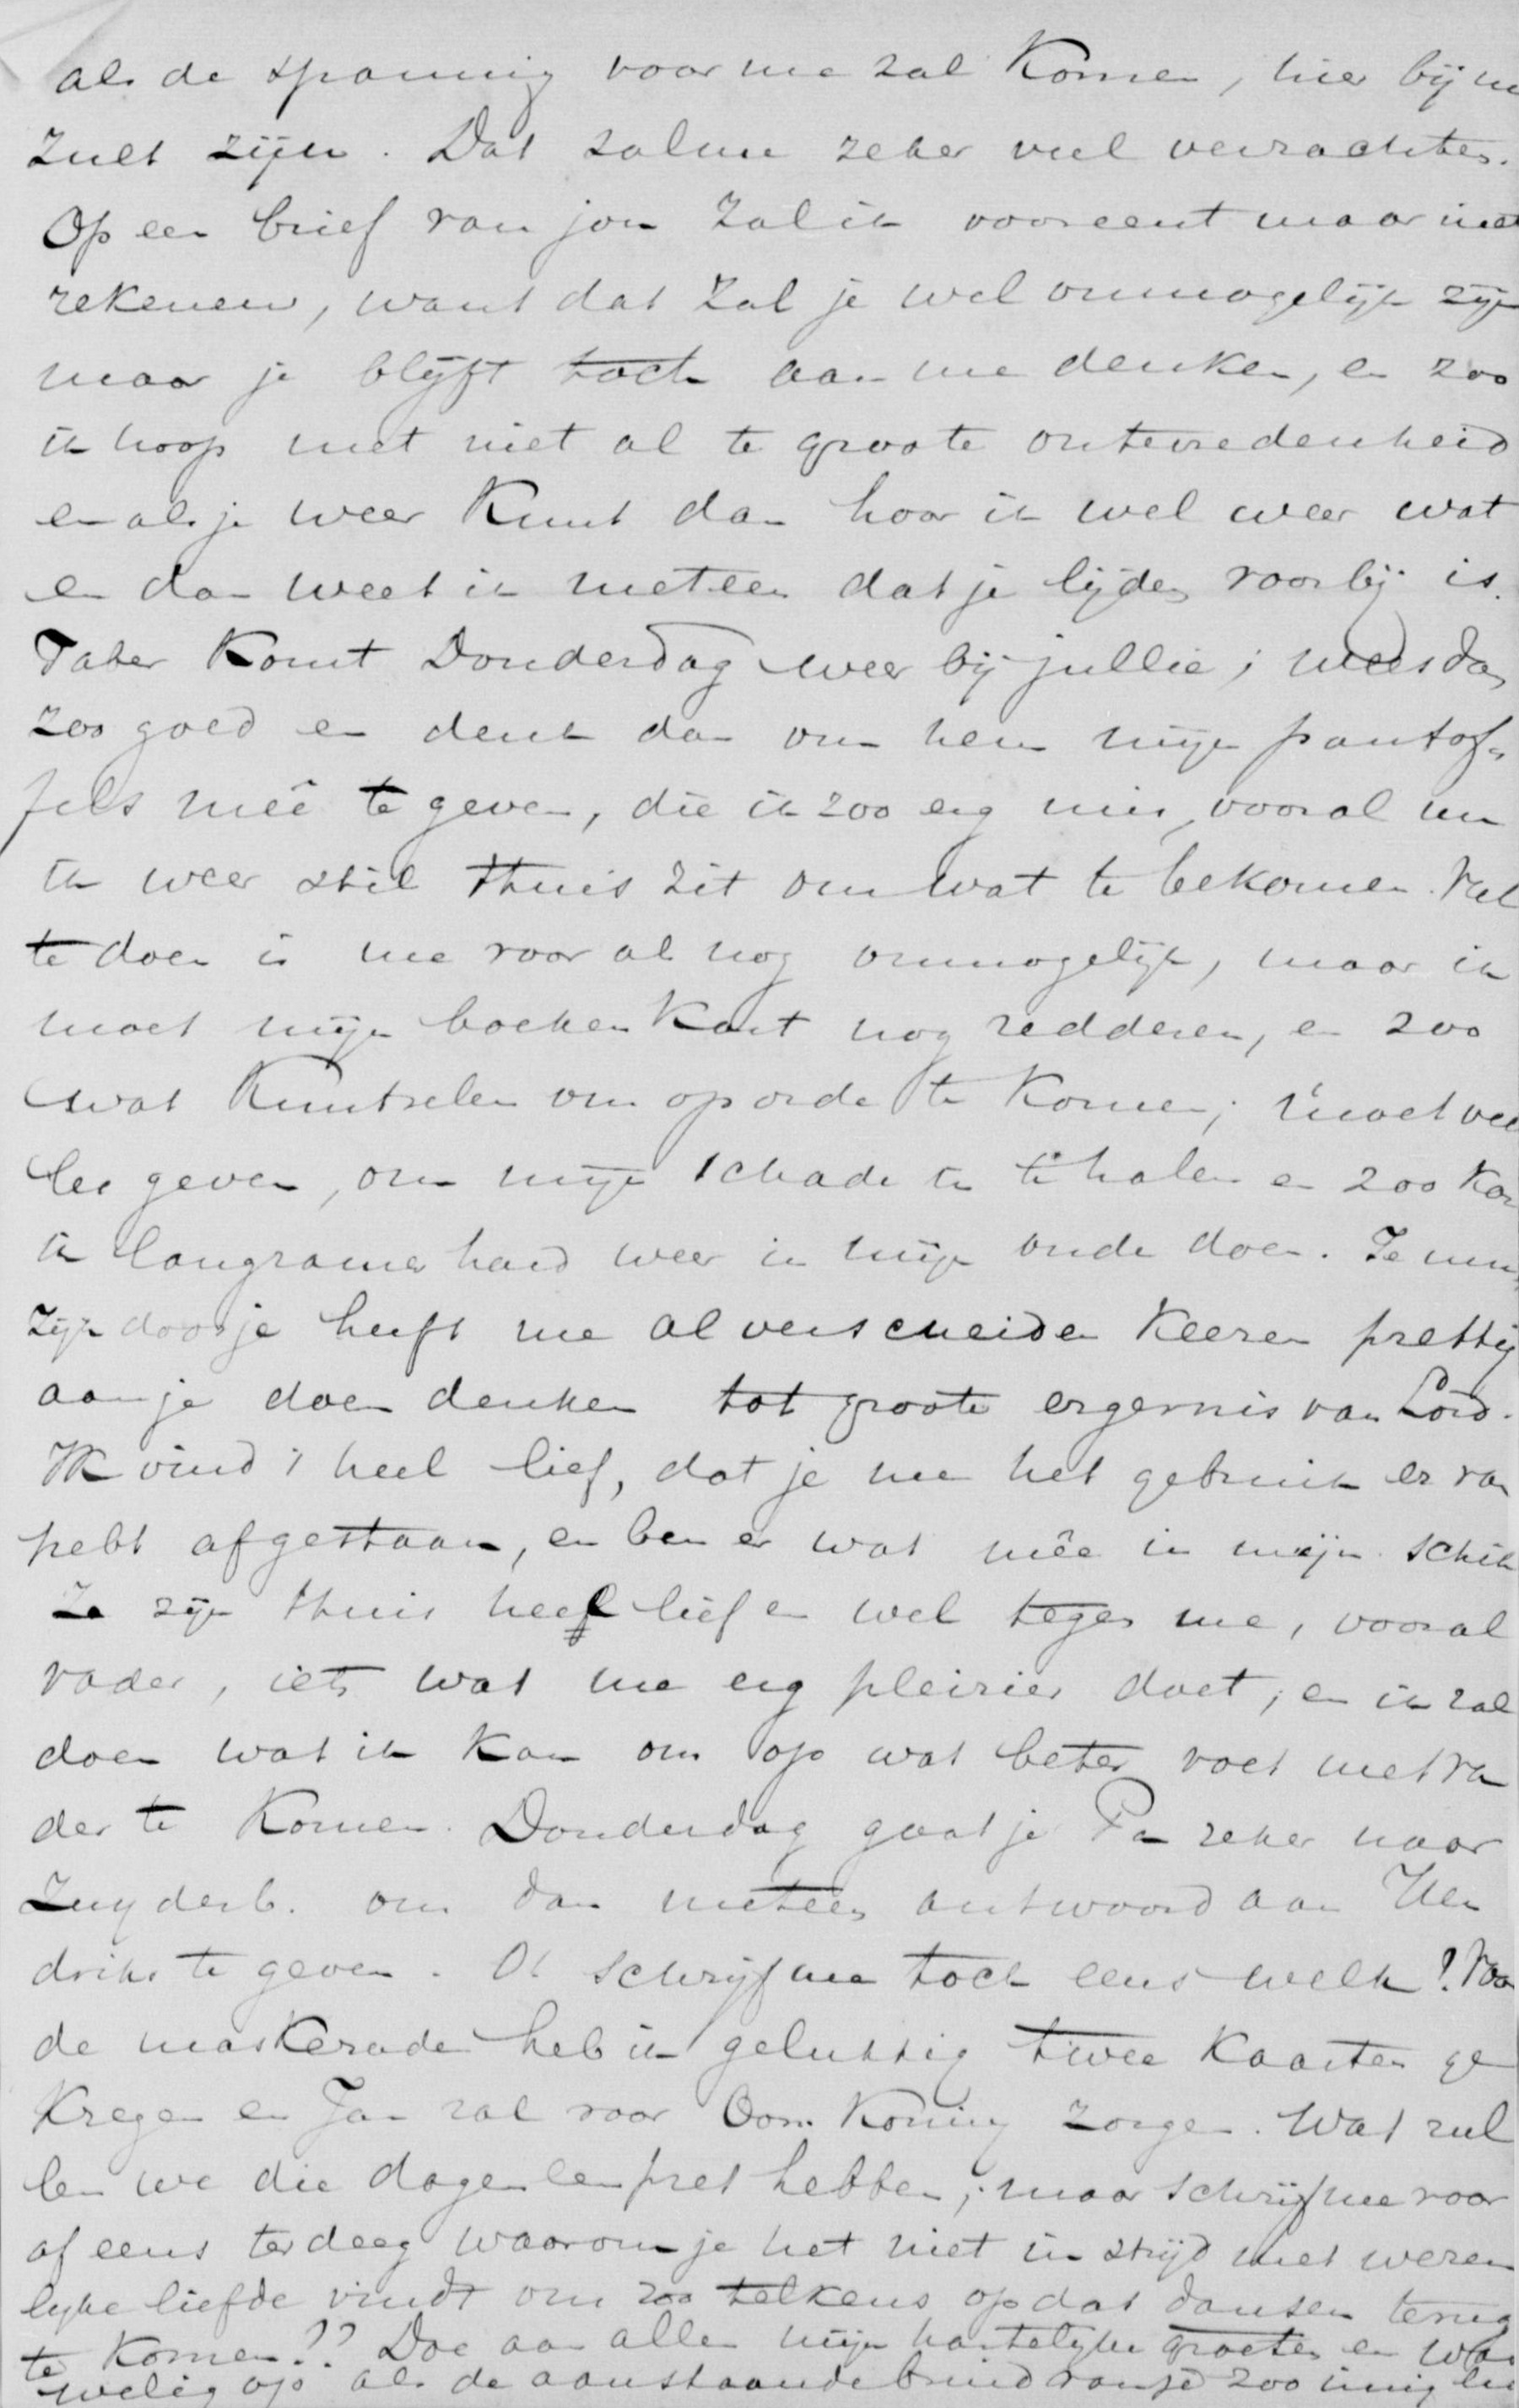 als de spanning voor me zal komen, hier bij me
zult zijn. Dat zal me zeker veel verzachten.
Op een brief van jou zal ik vooreerst maar niet
rekenen, want dat zal je wel onmogelijk zijn
maar je blijft toch aan me denken, en zoo
ik hoop met niet al te groote ontevredenheid
en als je weer kunt dan hoor ik wel weer wat
en dan weet ik meteen dat je lijden voorbij is.
Taber komt Donderdag weer bij jullie; wees dan
zoo goed en denk dan om hem mijn pantof-
fels meê te geven, die ik zoo erg mis, vooral nu
ik weer stil thuis zit om wat te bekomen. Veel
te doen is me vooral nog onmogelijk, maar ik
moet mijn boekenkast nog redderen, en zoo
wat knutselen om op orde te komen; 'k moet veel
les geven, om mijn schade in te halen en zoo kom
ik langzamerhand weer in mijn oude doen. Je
zijn doosje heeft me al verscheiden keeren prettig
aan je doen denken tot groote ergernis van Lord.
Ik vind 't heel lief, dat je me het gebruik er van
hebt afgestaan, en ben er wat mêe in mijn schik
Ze zijn thuis heel lief en wel tegen me, vooral
vader, iets wat me erg pleizier doet; en ik zal
doen wat ik kan om op wat beter voet met va
der te komen. Donderdag gaat je Pa zeker naar
Zuyderb. om dan meteen antwoord aan Hen
driks te geven. Ot schrijf me toch eens welk? Voor
de maskerade heb ik gelukkig twee kaarten ge
kregen en Jan zal voor Oom Koning zorgen. Wat zul
len we die dagen een pret hebben; maar schrijf me voor
af eens ter deeg waarom je het niet in strijd met wezen
lijke liefde vindt om zoo telkens op dat dansen terug
te komen?? Doe aan allen mijn hartelijke groeten en
op als de aanstaande bruid van je zoo innig